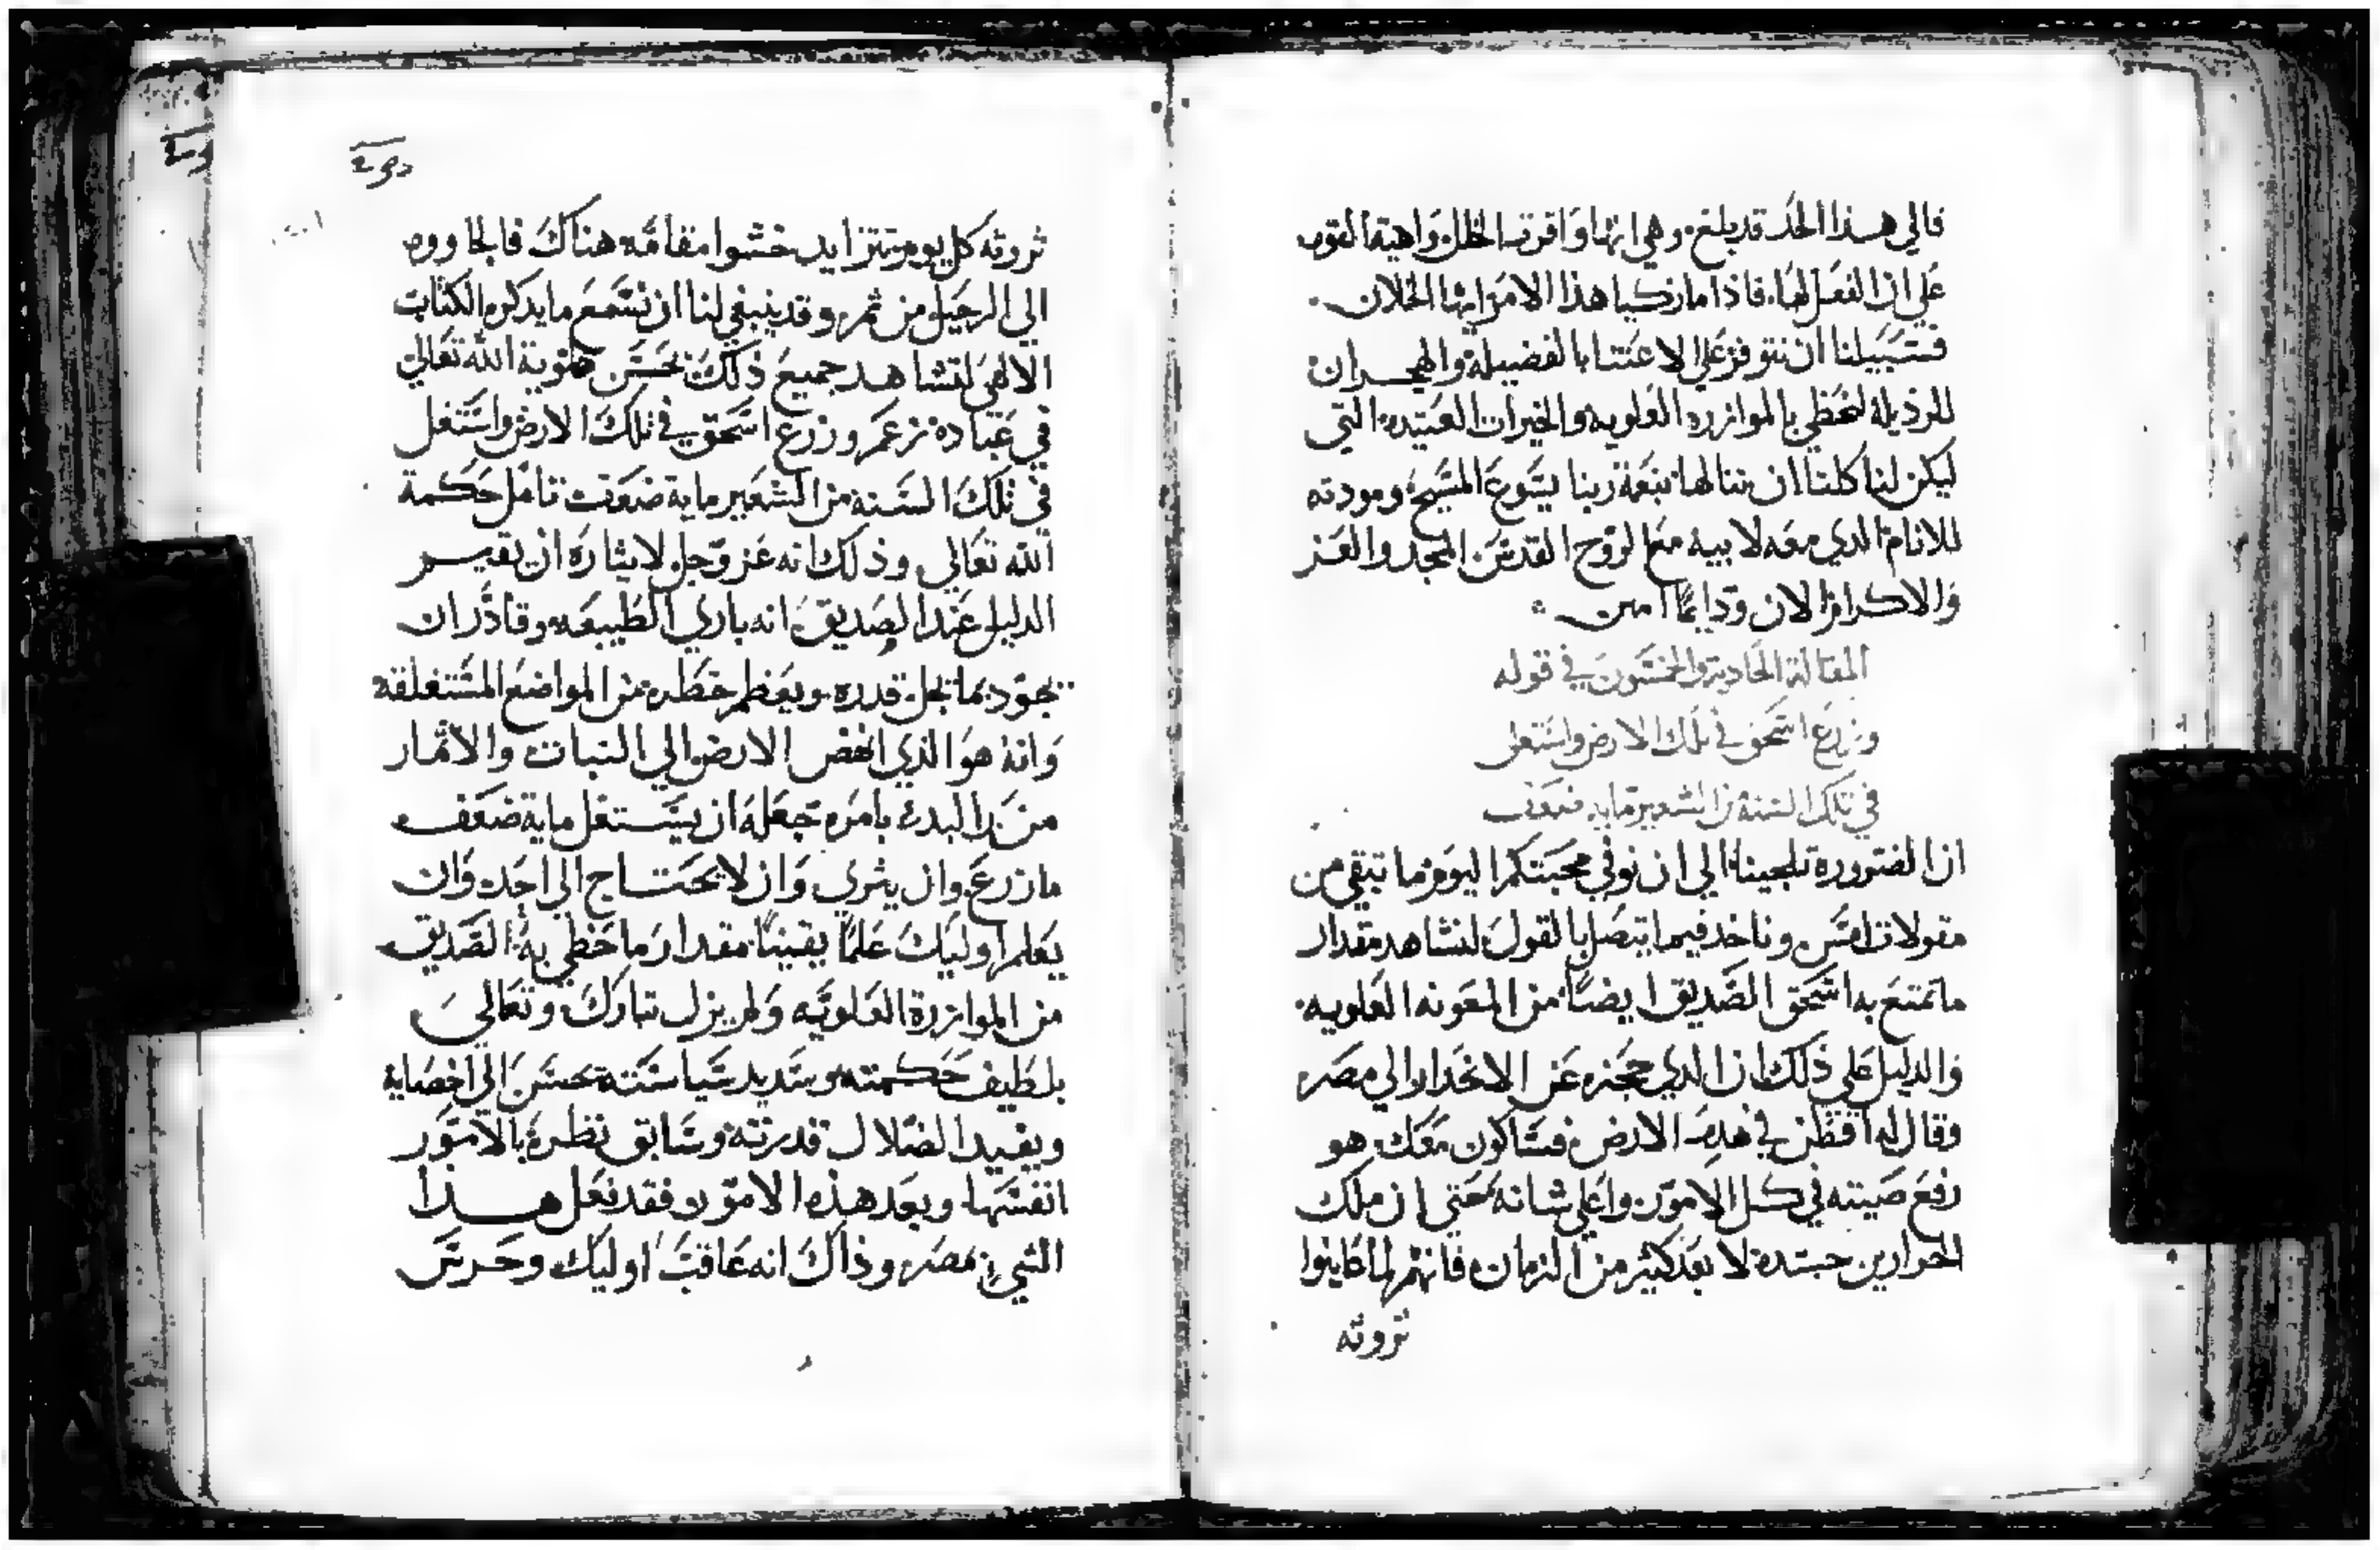 فالي هذا الحد قد بلغ وهي انها واقرته الخلل واهية القوه
علي ان الفعل لها فاذا ما زكيا هذا الامر ايها الخلان
فسبيلنا ان نتوفر علي الاعتنا بالفضيله والهجران
للرذيلة لنحظي بالموازره العلويه والخيرات العتيده التي
ليكن لنا كلنا ان ننالها بنعمة ربنا يسوع المسيح ومودته
للانام الدي معه لابيه مع الروح القدس المجد والعز
والاكرام الان ودايماً امين
المقالة الحادية والخمسون في قوله
وزرع اسحق في تلك الارض واستغل
في تلك السنة من الشعير ماية ضعف
ان الضروره تلجينا الي ان نوفي محبتكم اليوم ما تبقي من
مقولات امس وناخد فيما يتصل بالقول لنشاهد مقدار
ما تمتع به اسحق الصديق ايضاً من المعونه العلويه
والدليل علي ذلك ان الدي حجزه عن الانحدار الي مصر
وقال له اقطن في هذه الارض فساكون معك هو
رفع صيته في كل الامور واعلي شانه حتي ان ملك
الحرارين حسده لا بعد كثير من الزمان فانهم لما كاينوا
ثروته
ثروته كل يوم تتزايد خشوا مقامه هناك فالجاووه
الي الرحيل من ثم وقد ينبغي لنا ان نسمع ما يدكره الكتاب
الالهي لنشاهد جميع ذلك بحسن معوية الله تعالي
في عباده نزعم وزرع اسحق في تلك الارض واستغل
في تلك السنه من الشعير ماية ضعف تامل حكمة
الله تعالي وذلك انه عز وجل لايثاره ان يقيم
الدليل عند الصديق انه باري الطبيعه وقادر ان
يجود بما يجل قدره ويعظم خطره من المواضع المستغلقه
وانه هو الذي انهض الارض الي النبات والاثمار
من البدء بامره جعله ان يستغل ماية ضعف
ما زرع وان يثري وان لا يحتاج الي احد وان
يعلم اوليك علماً يقيناً مقدار ما حظي به الصديق
من الموازرة العلويه ولم يزل تبارك وتعالي
بلطيف حكمته وسديد سياسته يحسن الي اخصايه
ويفيد الضلال قدرته وسابق نظره بالامور
انفسها وبعد هذه الامور فقد فعل هذا
الشي بمصر وذاك انه عاقب اوليك وحرس